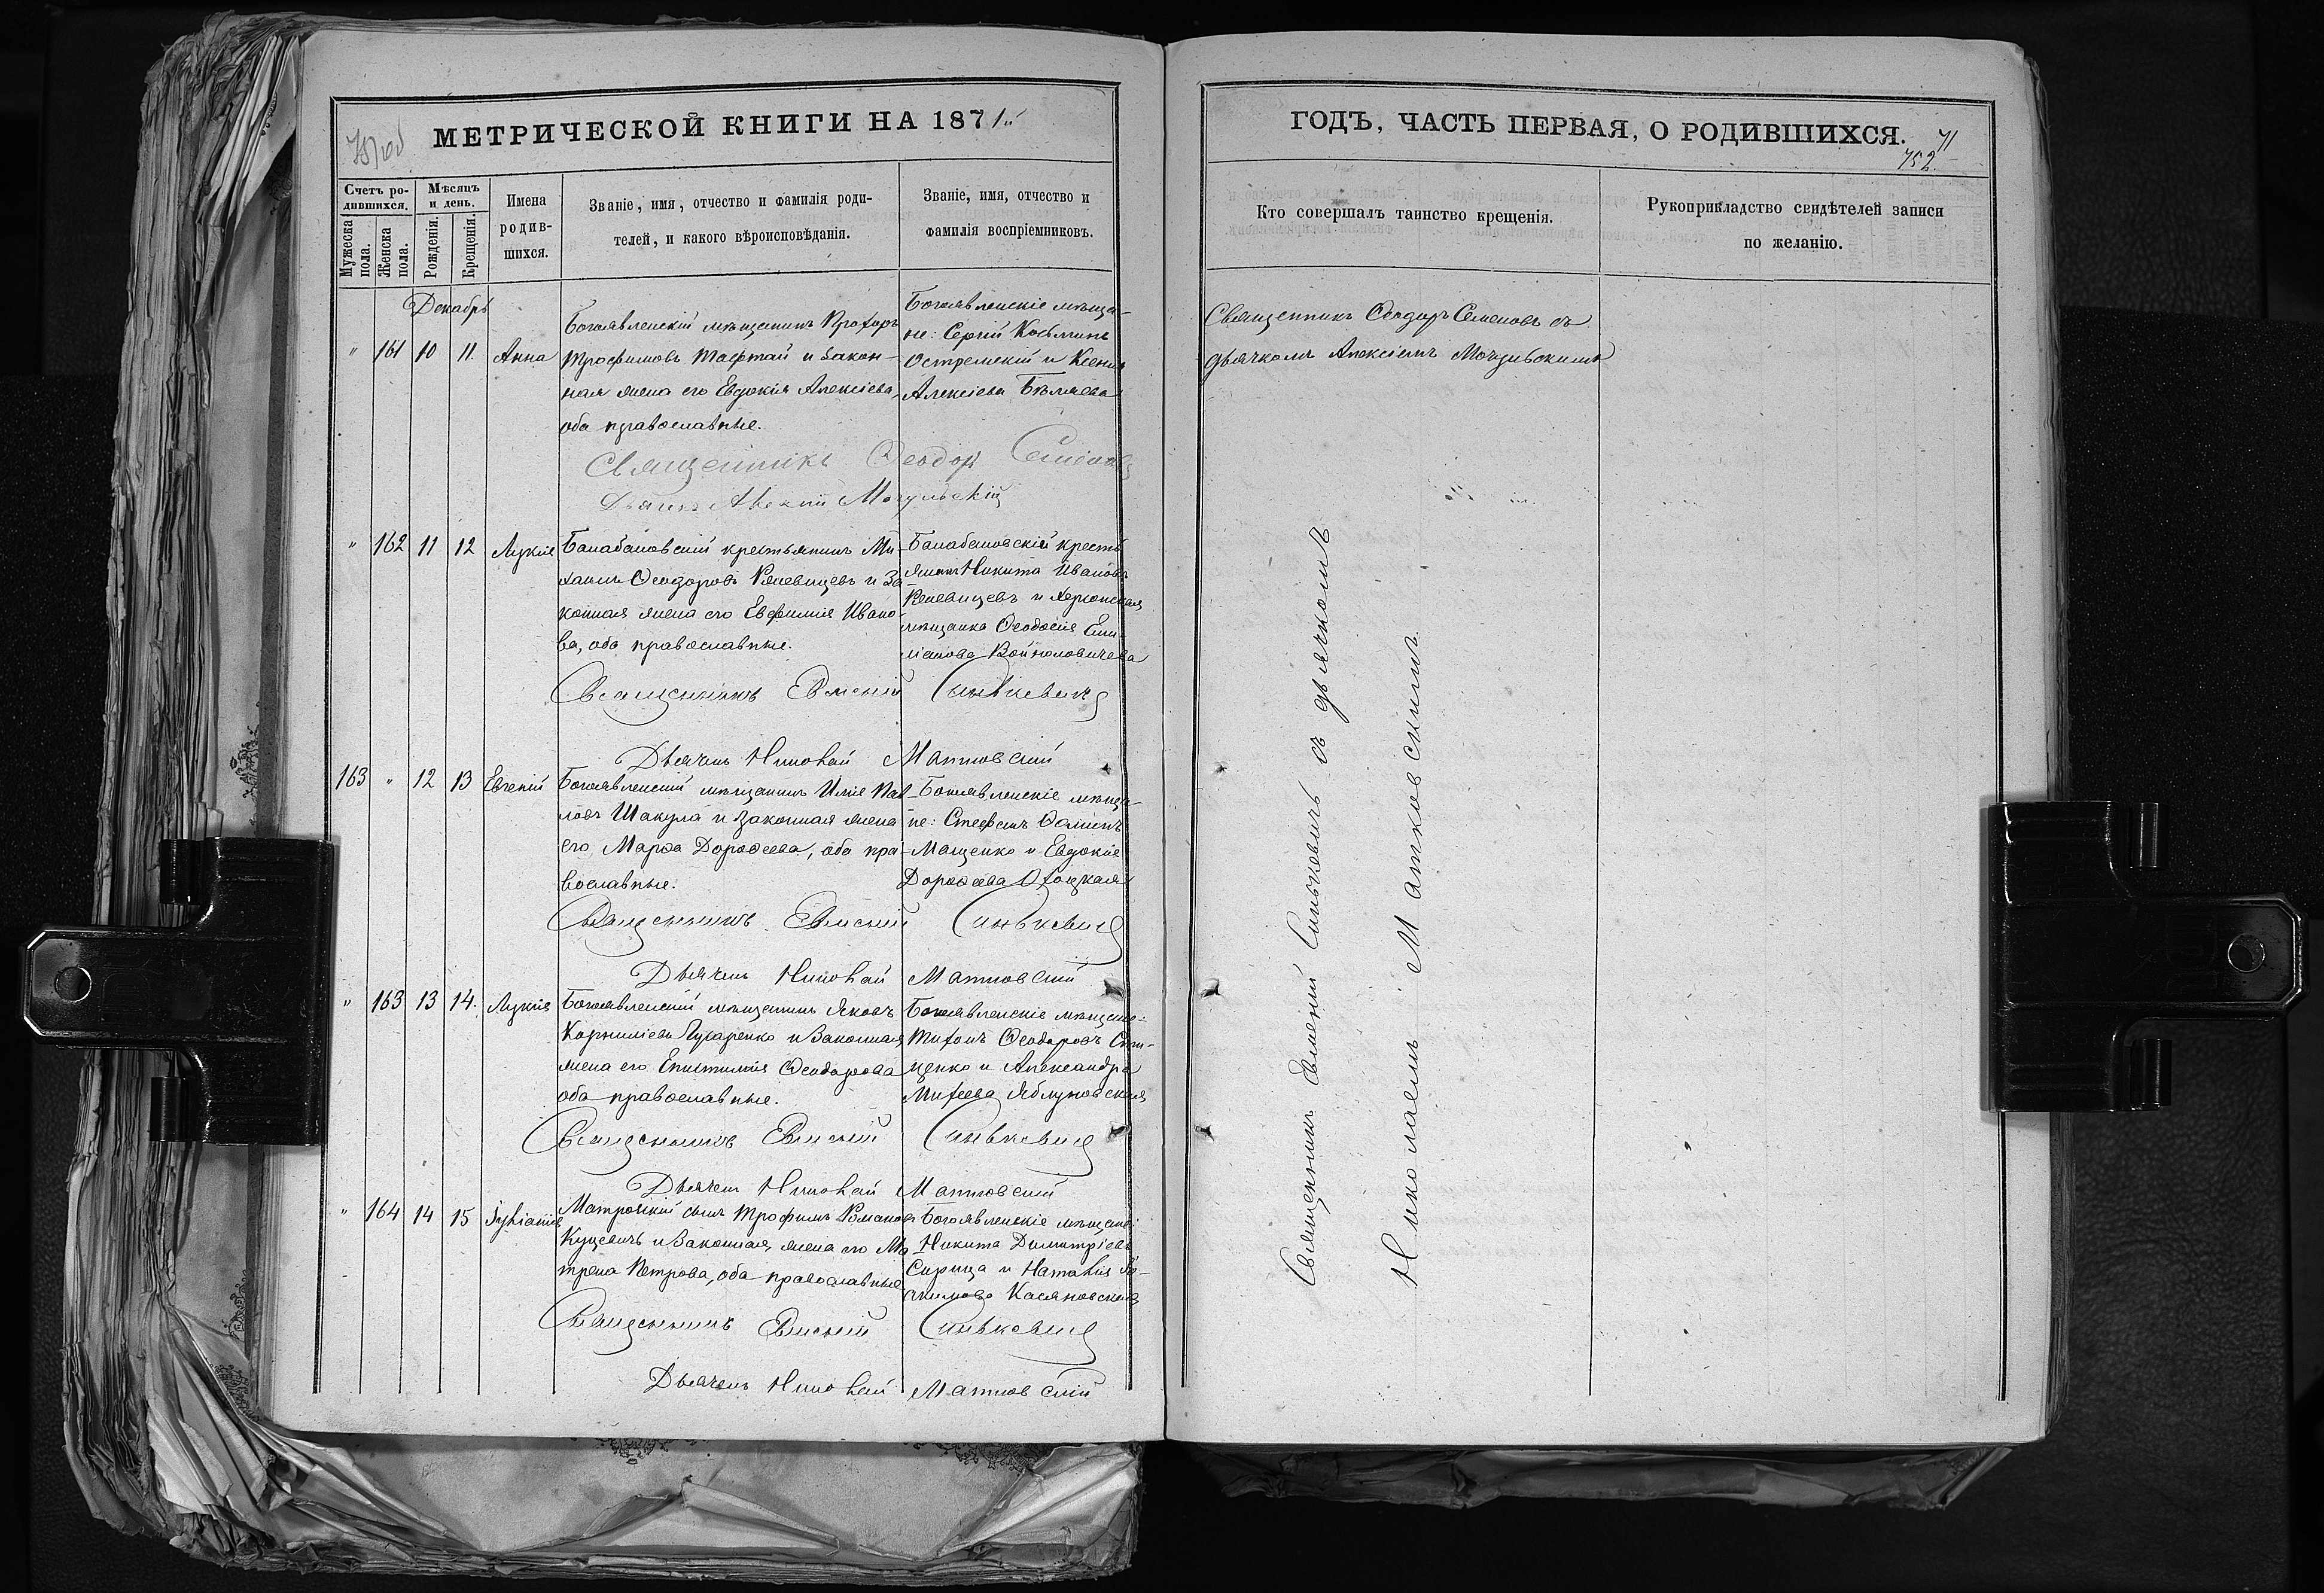 МЕТРИЧЕСКОЙ КНИГИ НА 1871й
Счетъ ро-
дившихся.
Мужеска
пола.
Женска
пола.
Мѣсяцъ
и день.
Рожденія.
Крещенія.
Имена
родив-
шихся.
Званіе, имя, отчество и фамилія роди-
телей, и какого вѣроисповѣданія.
Званіе, имя, отчество и
фамилія воспріемниковъ.
Декабрь
" 161 10 11. Анна
Богоявленскій мѣщанинъ Прохоръ
Трофимовъ Тафтай и закон-
ная жена его Евдокія Алексіева,
оба православные.
Богоявленскіе мѣща-
не: Сергій Косьминъ
Остремскій и Ксенія
Алексіева Бѣляева
Священникъ Ѳеодоръ Семеновъ
Дьячекъ Алексій Мочульскій
" 162 11 12 Лукія
Балабановскій крестьянинъ Ми-
хаилъ Ѳеодоровъ и За-
конная жена его Евфимія Ивано-
ва, оба православные.
Балабановскій кресть-
янинъ Никита Ивановъ
и Херсонская
мѣщанка Ѳеодосія Еми-
ліанова Войноловичева
Священникъ Евменій Синькевичъ
Дьячекъ Николай Матковскій
163 " 12 13 Евгеній
Богоявленскій мѣщанинъ Илія Пав-
ловъ Шакула и законная жена
его Марѳа Дороѳеева, оба пра-
вославные.
Богоявленскіе мѣща-
не: Стефанъ Ѳоминъ
Мащенко и Евдокія
Дороѳеева
Священникъ Евменій Синькевичъ
Дьячекъ Николай Матковскій
" 163 13 14. Лукія
Богоявленскій мѣщанинъ Яковъ
Корниліевъ и Законная
жена его Епистимія Ѳеодорова
оба православные.
Богоявленскіе мѣщане:
Тихонъ Ѳеодоровъ
и Александра
Михеева Яблуновская
Священникъ Евменій Синькевичъ
Дьячекъ Николай Матковскій
" 164 14 15 Іуліанія
сынъ Трофимъ Романовъ
Куцевичъ и Законная жена его Ма-
трена Петрова, оба православные
Богоявленскіе мѣщане:
Никита Димитріевъ
Сирица и Наталія Іо-
акимова Касяновская
Священникъ Евменій Синькевичъ
Дьячекъ Николай Матковскій
ГОДЪ, ЧАСТЬ ПЕРВАЯ, О РОДИВШИХСЯ.
71
752.
Кто совершалъ таинство крещенія.
Рукоприкладство свидѣтелей записи
по желанію.
Священникъ Ѳеодоръ Семеновъ съ
дьячкомъ Алексіемъ Мочульскимъ
Священникъ Евменій Синькевичъ съ дьячкомъ
Николаемъ Матковскимъ